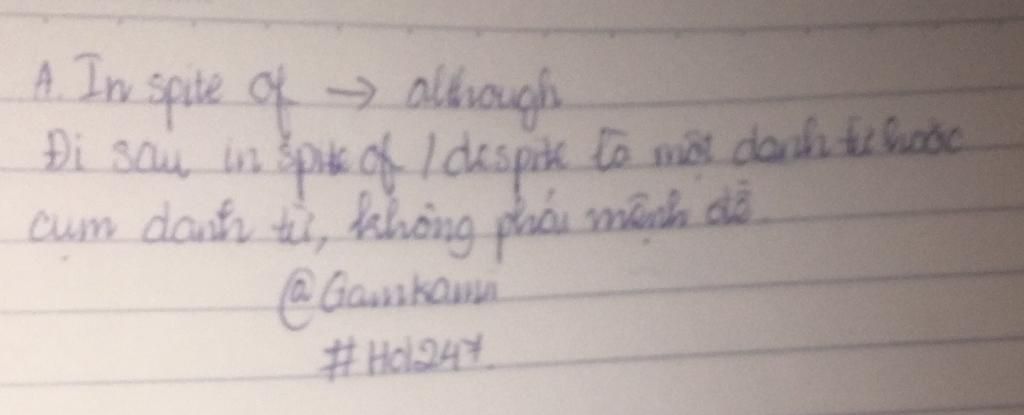 A. In spite of → although
Đi sau in spite of / despite là một danh từ hoặc
cụm danh từ, không phải mệnh đề
@Gamkami
#Hd247.